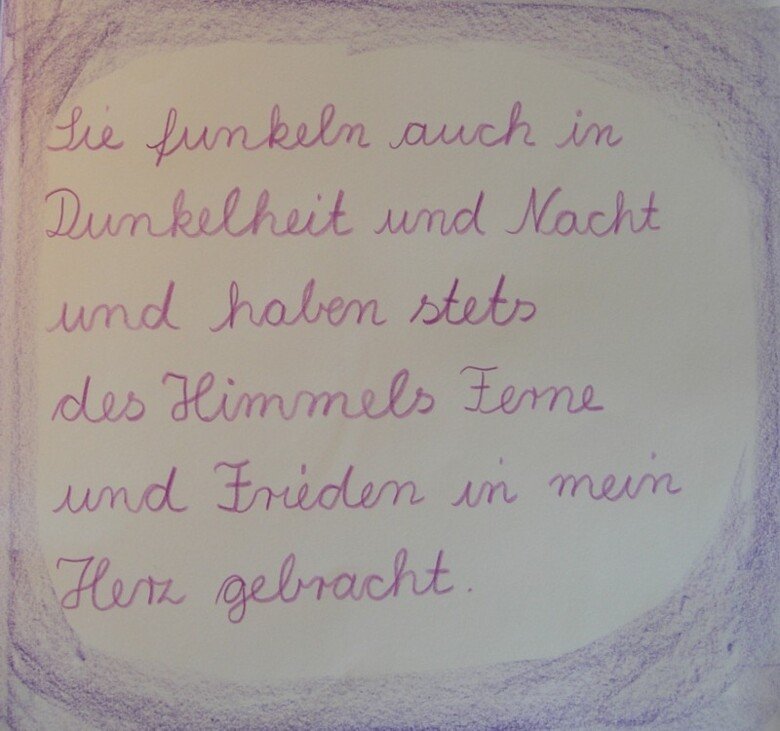 Sie funkeln auch in
Dunkelheit und Nacht
und haben stets
des Himmels Ferne
und Frieden in mein
Herz gebracht.